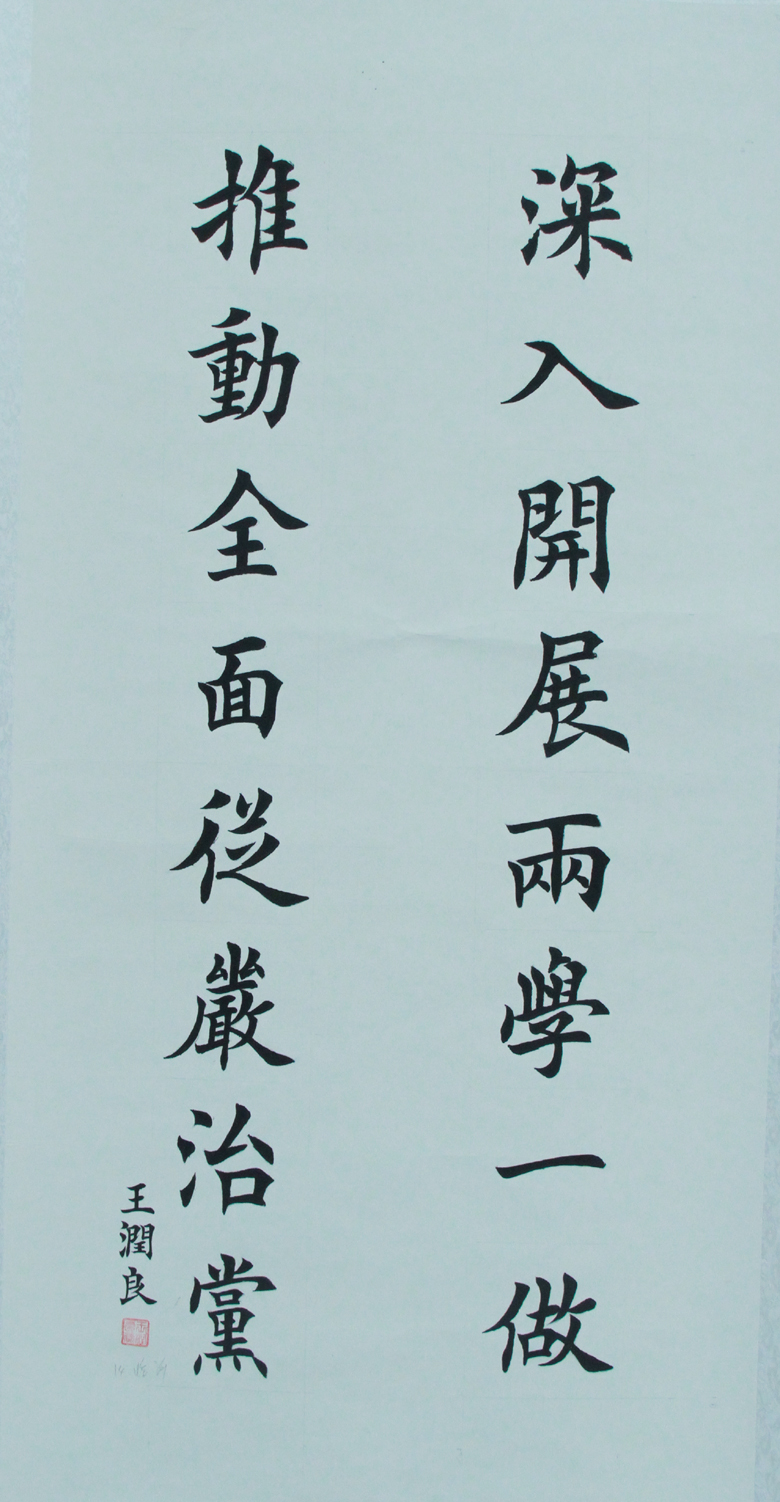 深入開展兩學一做
推動全面從嚴治黨
王潤良